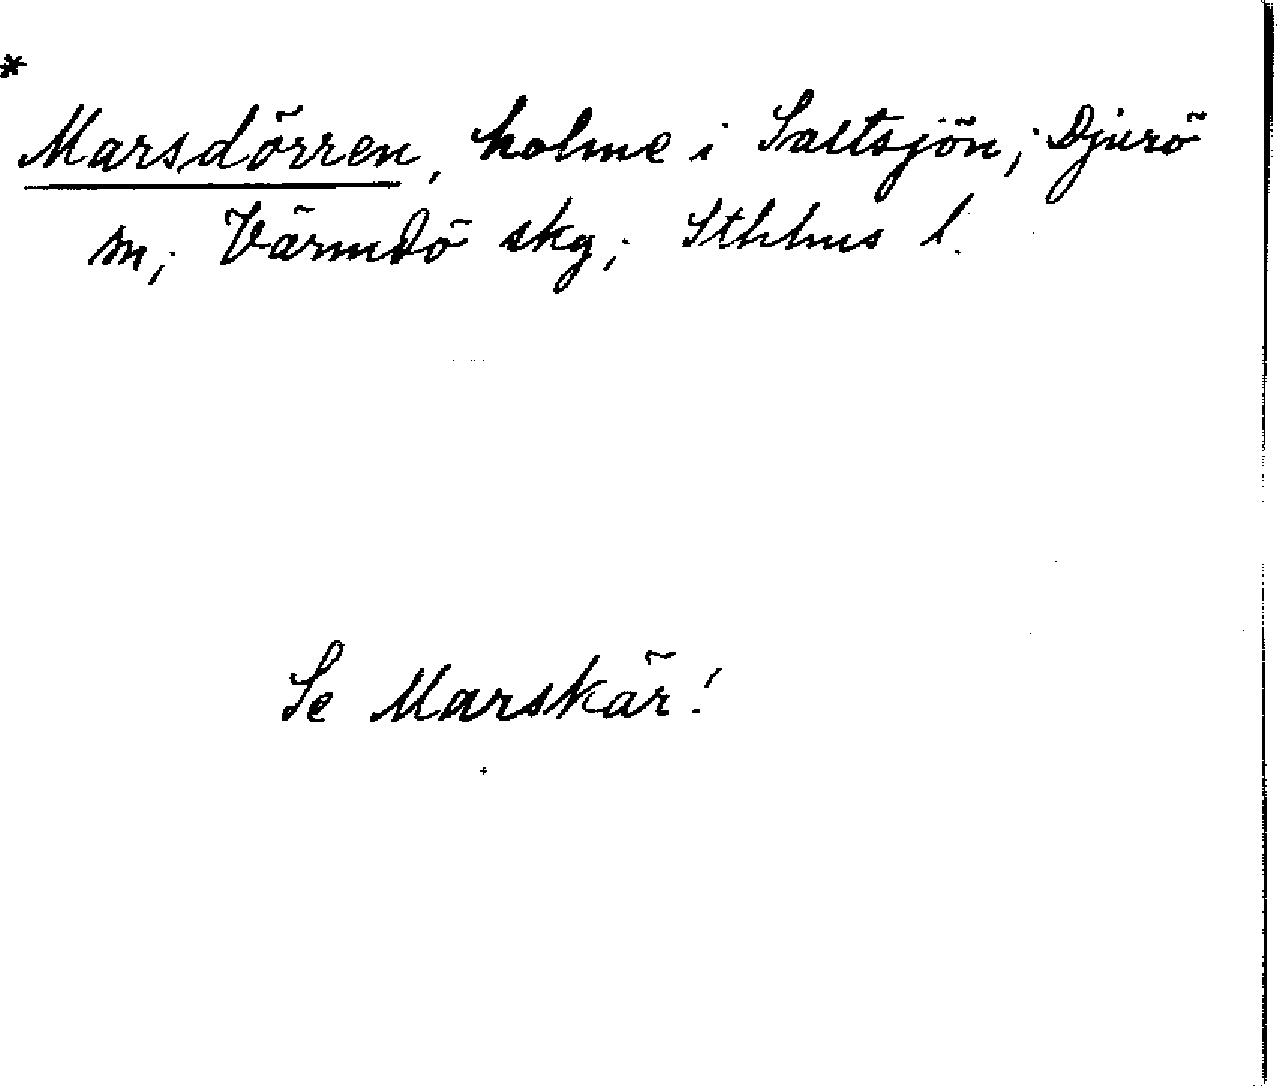 *
Marsdörren, holme i Saltsjön; Djurö
sn; Värmdö skg; Sthlms l.
Se Marskär!